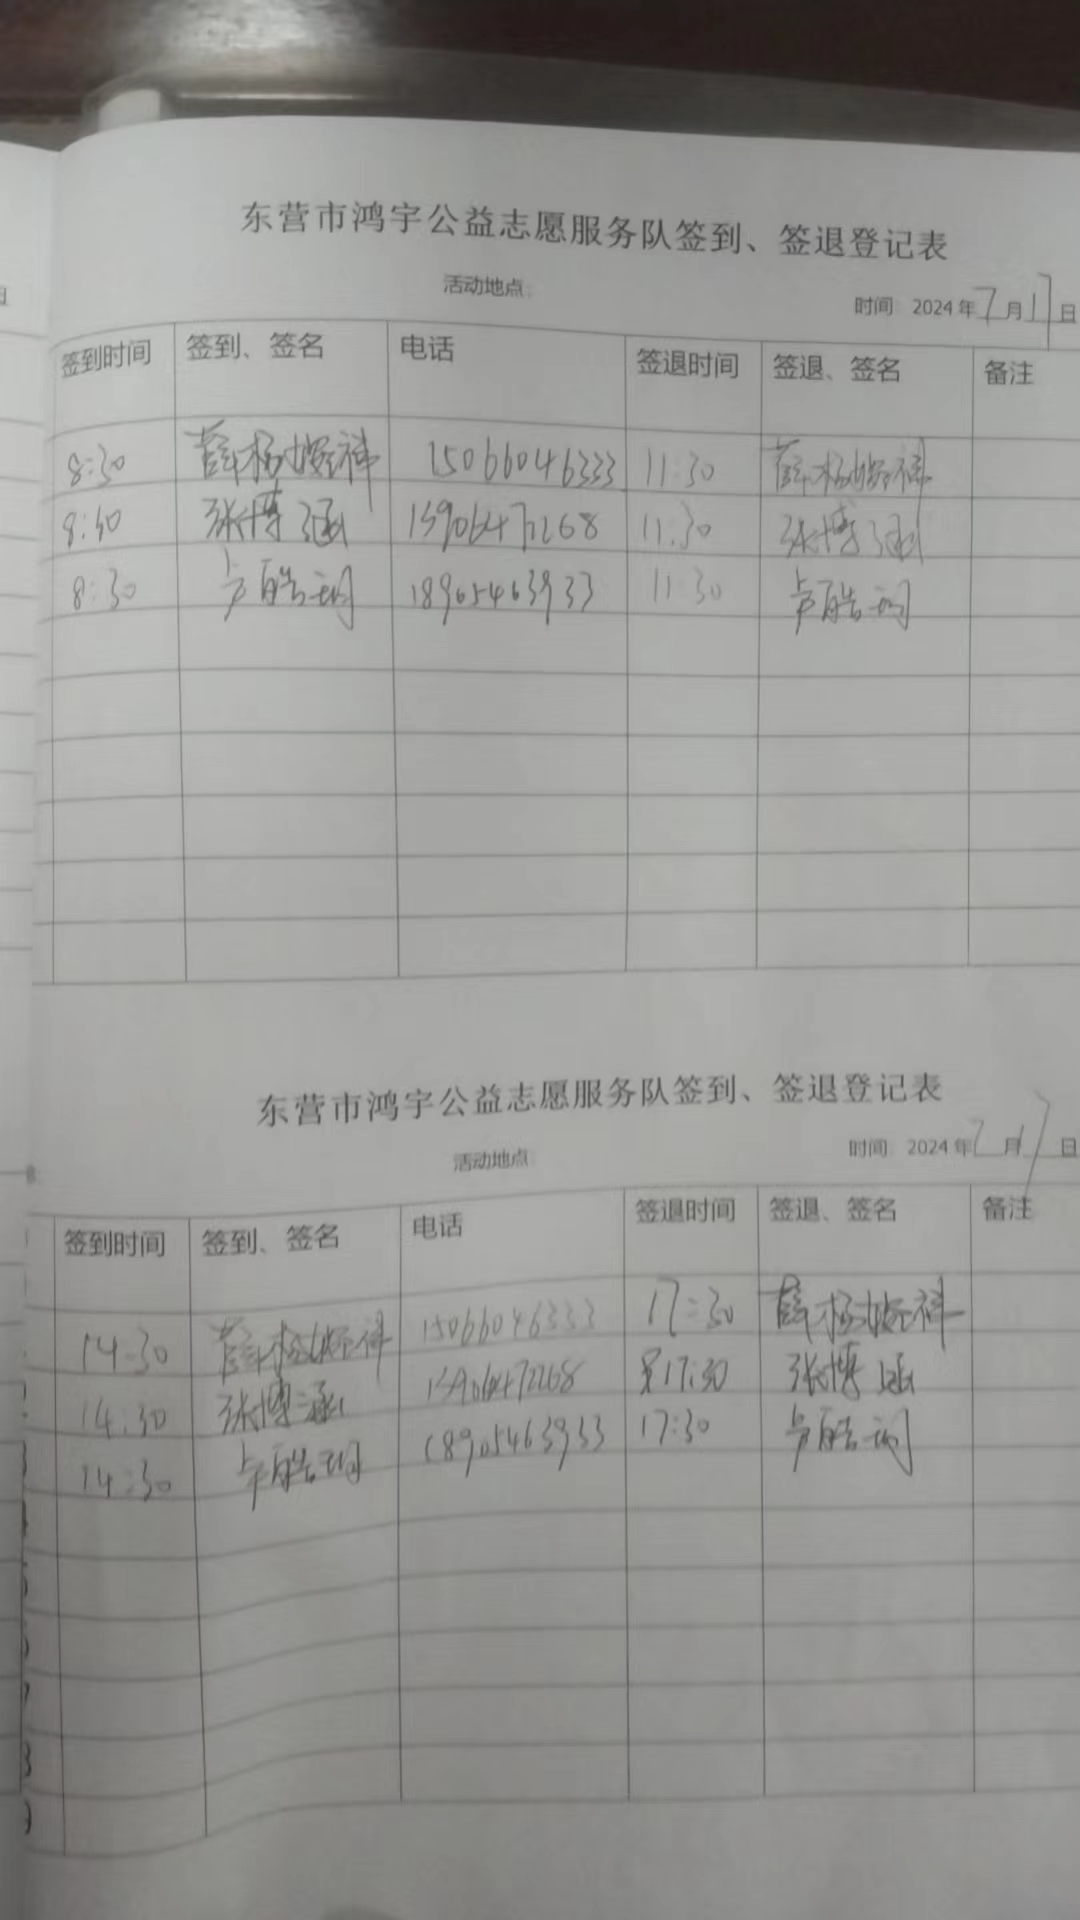 东营市鸿宇公益志愿服务队签到、签退登记表
活动地点:
时间 2024年7月17日
签到时间 签到、签名 电话 签退时间 签退、签名 备注
8:30 薛杨 祥 15066046333 11:30 薛杨 祥
8:30 张博涵 13906472268 11:30 张博涵
8:30 卢皓玥 18905463933 11:30 卢皓玥
东营市鸿宇公益志愿服务队签到、签退登记表
活动地点:
时间 2024年7月17日
签到时间 签到、签名 电话 签退时间 签退、签名 备注
14:30 薛杨 祥 15066046333 17:30 薛杨 祥
14:30 张博涵 13906472268 17:30 张博涵
14:30 卢皓玥 18905463933 17:30 卢皓玥